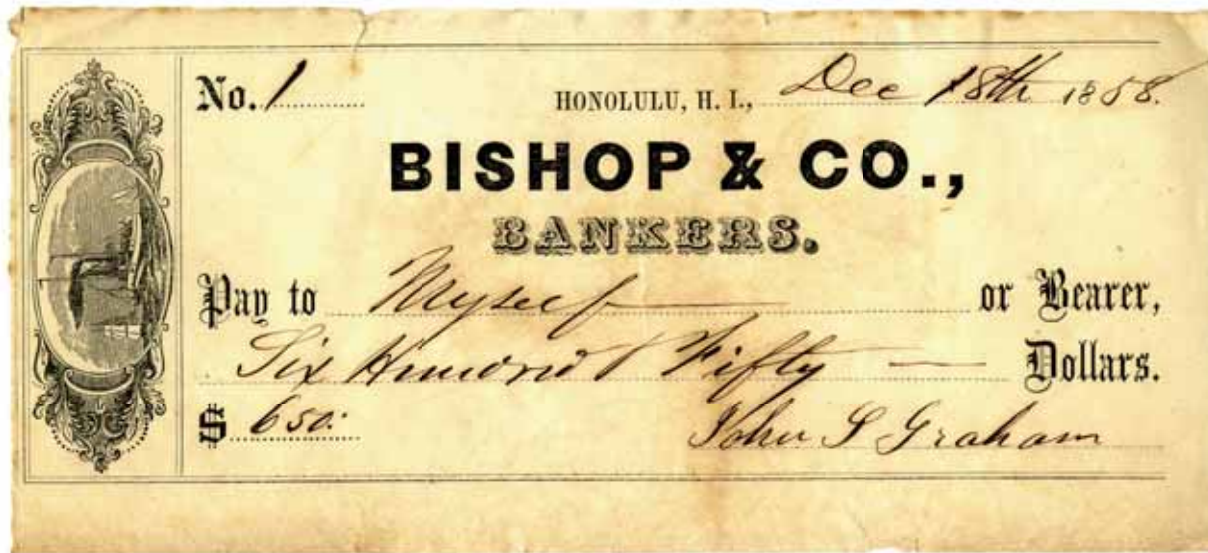 No. 1 HONOLULU, H. I., Dec 18th 1858.
BISHOP & CO.,
BANKERS.
Pay to Myself or Bearer,
Six Hundred & Fifty — Dollars.
$ 650.
John S Graham